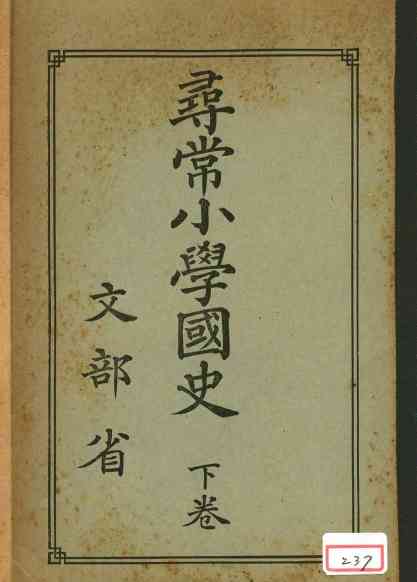 尋常小學國史
下卷
文部省
237